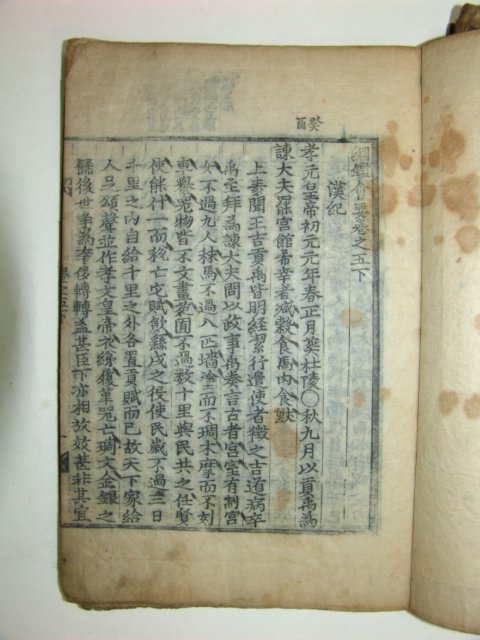 癸酉
綱鑑會要卷之五下
漢紀
孝元皇帝初元元年春正月葬杜陵○秋九月以貢禹為
諫大夫罷宮館希幸者減穀食馬肉食獸
上素聞王吉貢禹皆明經絜行遣使者徵之吉道病卒
禹至拜為諫大夫問以政事禹奏言古者宮室有制宮
女不過九人秣馬不過八匹墻塗而不琱木摩而不刻
車輿器物皆不文畫苑囿不過數十里與民共之任賢
使能什一而稅亡它賦歛繇戍之役使民歲不過三日
千里之內自給千里之外各置貢賦而已故天下家給
人足頌聲並作孝文皇帝衣綈履革器亡琱文金銀之
儲後世爭為奢侈轉轉益甚臣下亦相放效甚非其宜